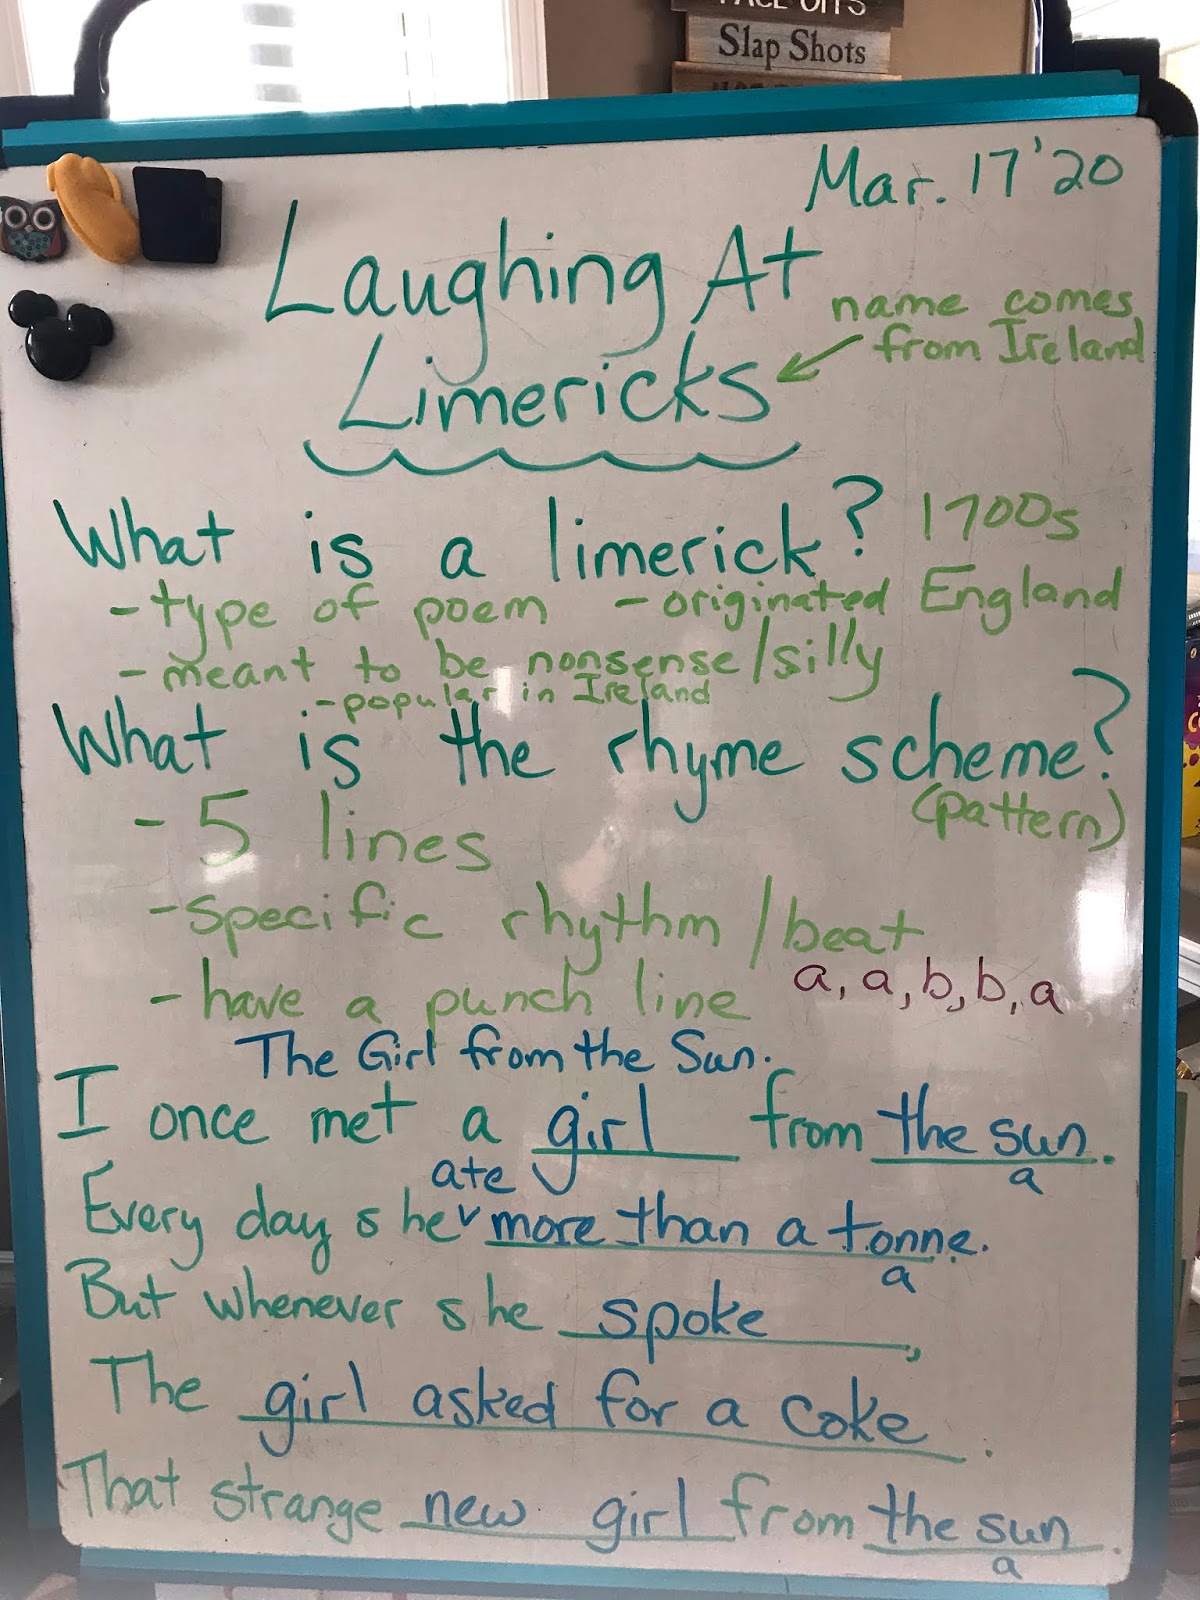 Slap Shots
Mar. 17 '20
Laughing At
Limericks
name comes
from Ireland
What is a limerick? 1700s
- type of poem - originated England
- meant to be nonsense/silly
- popular in Ireland
What is the rhyme scheme?
(pattern)
- 5 lines
- specific rhythm/beat
- have a punch line a, a, b, b, a
The Girl from the Sun.
I once met a girl from the sun.
a
ate
Every day she ˅ more than a tonne.
a
But whenever she spoke,
The girl asked for a coke.
That strange new girl from the sun.
a